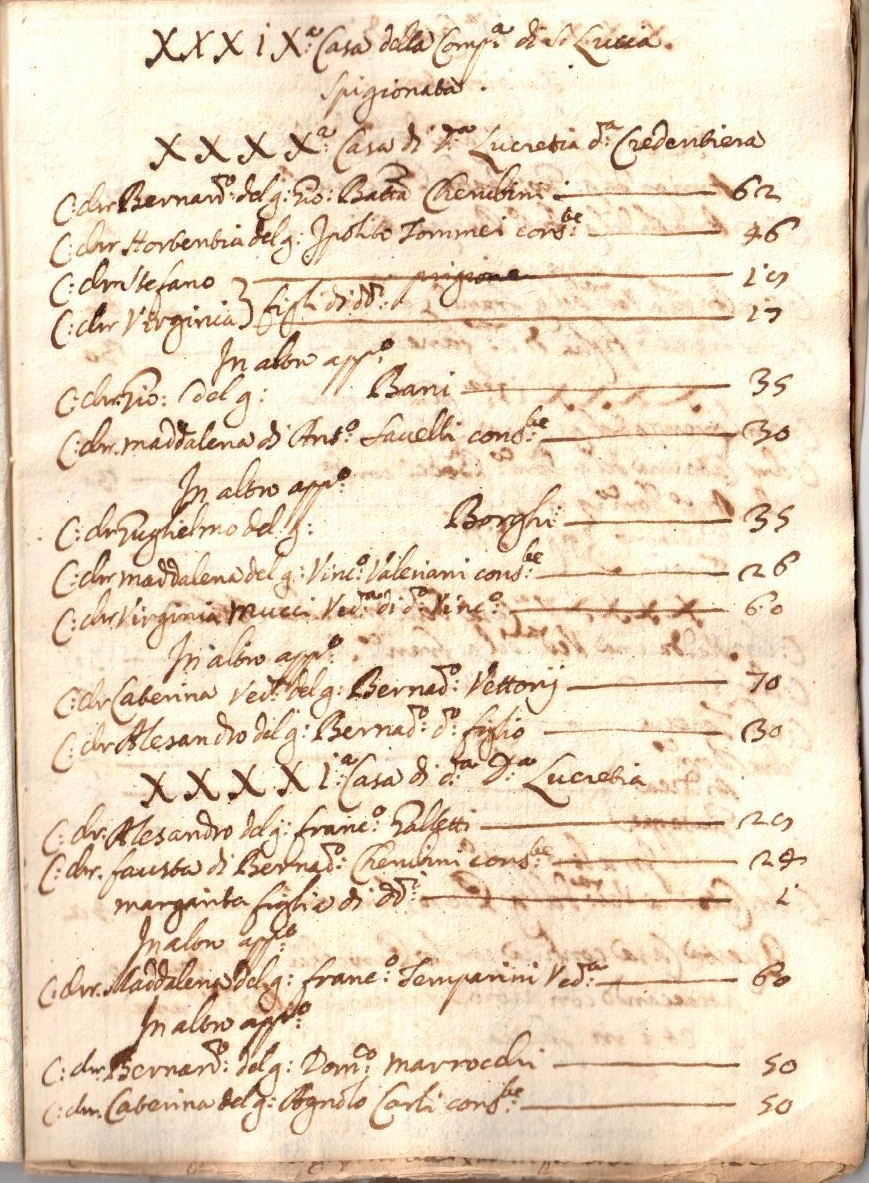 XXXIXª Casa della Compª di Sª Lucia.
Spigionata.
XXXXª Casa di Dª Lucretia dª Credentiera
C: chr Bernardº: del g: Gio: Batta Cherubini 62
C: chr Hortentia del g: Ipolito Tommei consᵗᵉ 46
C: chr Stefano
C: chr Virginia } figli di dd: 17
In altro appº
C: chr. Gio: del g: Bani 35
C: chr. maddalena di Antº Savelli consᵗᵉ 30
In altro appº
C: chr Guglielmo del g: Borghi 35
C: chr maddalena del g: Vincº: Valeriani consᵗᵉ 26
C: chr Virginia Mucci Vedª di dº Vincº 60
In altro appº
C: chr Caterina Vedª del g: Bernadº: Vettorij 70
C: chr Alesandro del g: Bernadº: dº figlio 30
XXXXIª Casa di dª Dª Lucretia
C: chr. Alesandro del g: francº: Galletti
C: chr. fausta di Bernadº: Cherubini consᵗᵉ 24
margarita figlia di dd:ⁱ 1
In altro appº
C: chr. Maddalena del g: francº: Temparini Vedª 60
In altro appº
C: chr. Bernardº: del g: Domcº: marrocchi 50
C: chr. Caterina del g: Agnolo Carli consᵗᵉ 50